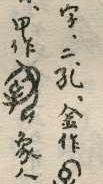 字、二孔、金作
甲作 象人